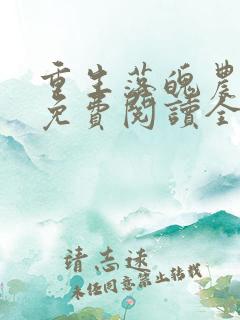 重生落魄農
免費閱讀全
靖志远
未经同意禁止转载